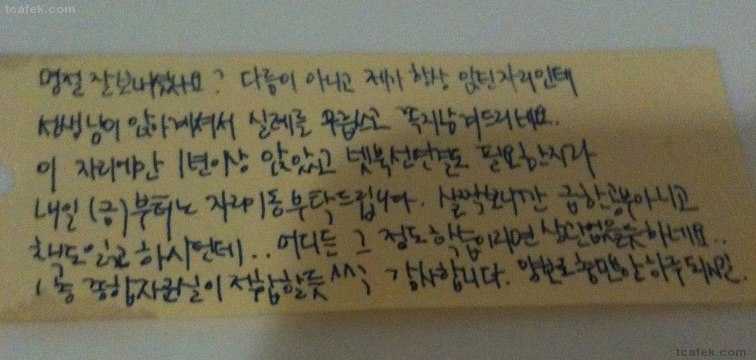 tcafek.com
명절 잘보내셨나요? 다름이 아니고 제가 항상 앉던자리인데
선생님이 앉아계셔서 실례를 무릅쓰고 쪽지남겨드리네요.
이 자리에만 1년이상 앉았고 넷북선연결도 필요한지라
내일 (금)부터는 자리이동부탁드립니다. 살짝보니깐 급한공부아니고
책도읽고 하시던데.. 어디든 그 정도 학습이라면 상관없을듯하네요..
1층 종합자료실이 적합할듯^^; 감사합니다.
tcafek.com